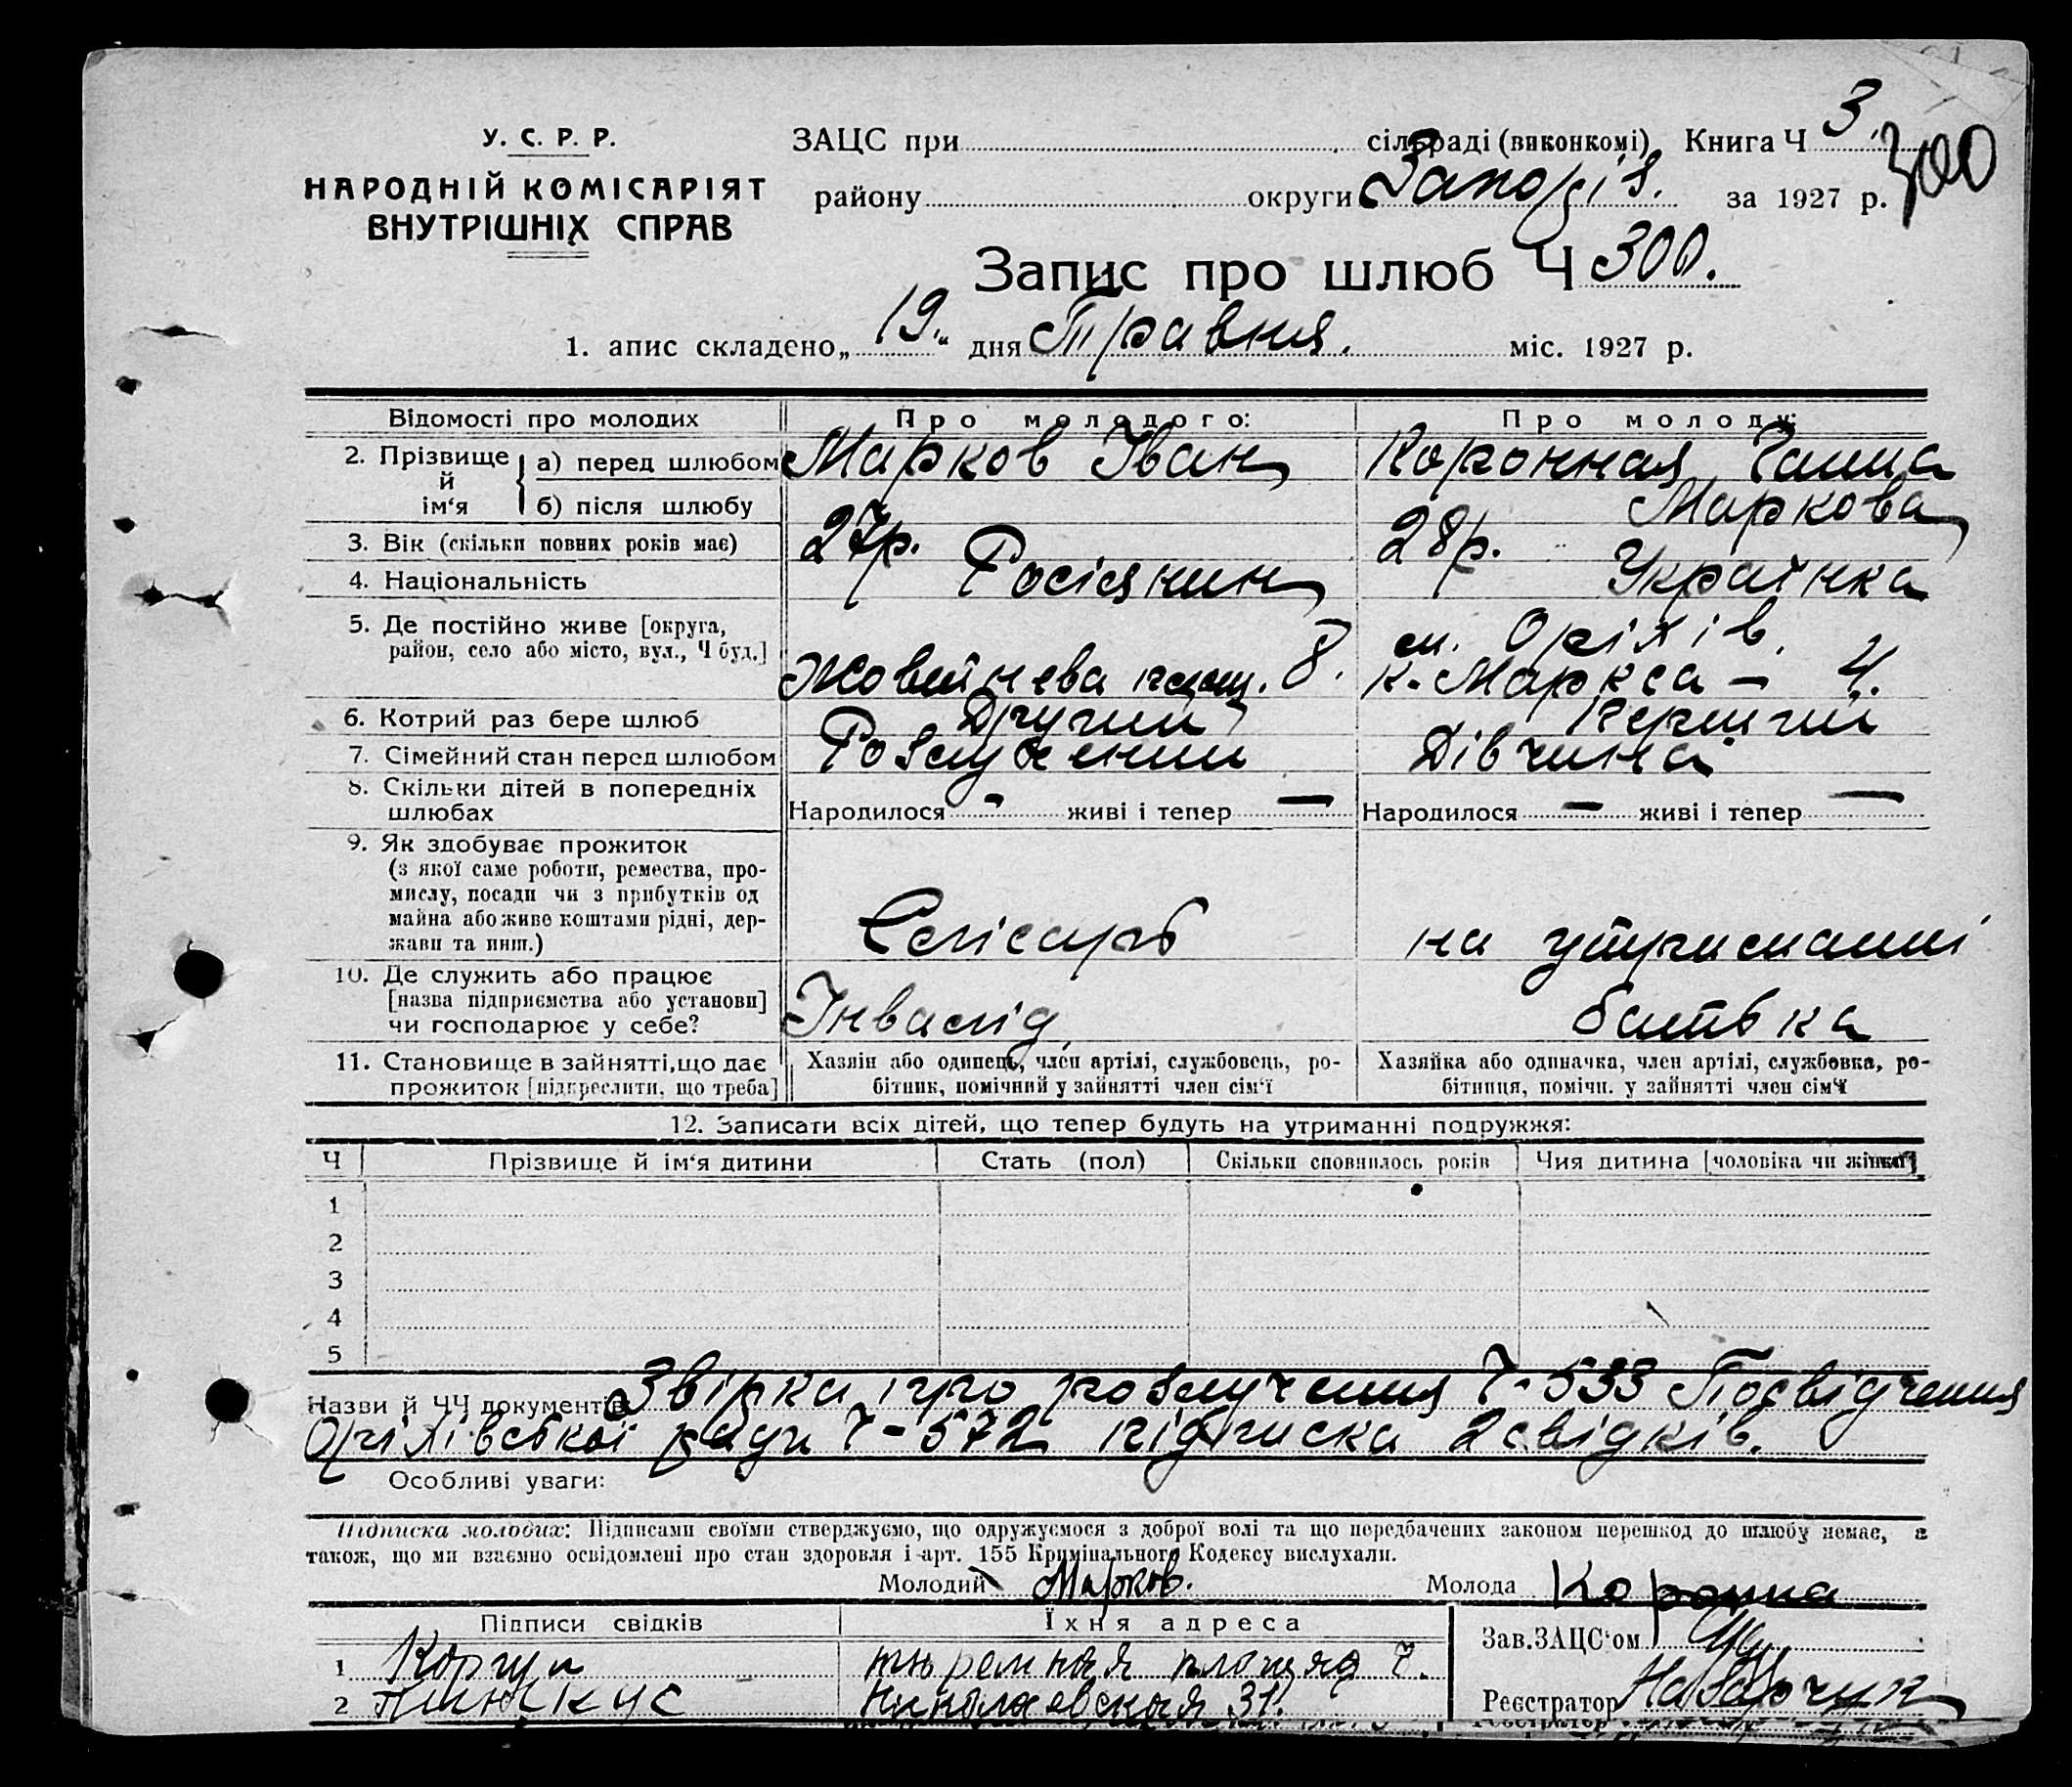 У. С. Р. Р.
НАРОДНІЙ КОМІСАРІЯТ
ВНУТРІШНІХ СПРАВ
ЗАЦС при сільраді (виконкомі) Книга Ч 3.
району округи Запоріз. за 1927 р. 300
Запис про шлюб Ч 300.
1. апис складено „19." дня Травня. міс. 1927 р.
Відомості про молодих Про молодого: Про молоду:
2. Прізвище й ім'я а) перед шлюбом Марков Іван Коронная Ганна
б) після шлюбу Маркова
3. Вік (скільки повних років має) 27р. 28р.
4. Національність Росіянин Українка
5. Де постійно живе [округа, район, село або місто, вул., Ч буд.] Жовтнева площ. 8. м. Оріхів. К. Маркса — 4.
6. Котрий раз бере шлюб Другий Перший
7. Сімейний стан перед шлюбом Розлучений Дівчина
8. Скільки дітей в попередніх шлюбах Народилося - живі і тепер — Народилося — живі і тепер —
9. Як здобуває прожиток
(з якої саме роботи, ремества, про-
мислу, посади чи з прибутків од
майна або живе коштами рідні, дер-
жави та инш.) Слісарь на утриманні
10. Де служить або працює
[назва підприємства або установи]
чи господарює у себе? Інвалід батька
11. Становище в зайнятті, що дає
прожиток [підкреслити, що треба]
Хазяїн або одинець, член артілі, службовець, ро-
бітник, помічний у зайнятті член сім'ї
Хазяйка або одиначка, член артілі, службовка, ро-
бітниця, помічн. у зайнятті член сім'ї
12. Записати всіх дітей, що тепер будуть на утриманні подружжя:
Ч Прізвище й ім'я дитини Стать (пол) Скільки сповнилось років Чия дитина [чоловіка чи жінки]
1
2
3
4
5
Назви й ЧЧ документів: Звірка про розлучення Ч-533 Посвідчення
Оріхівської ради Ч-572 підписка 2 свідків.
Особливі уваги:
Підписка молодих: Підписами своїми стверджуємо, що одружуємося з доброї волі та що передбачених законом перешкод до шлюбу немає, а
також, що ми взаємно освідомлені про стан здоровля і арт. 155 Кримінального Кодексу вислухали.
Молодий Марков. Молода Коронна
Підписи свідків Їхня адреса
Зав. ЗАЦС'ом
1 тюремная площяд 7.
2 Пинкус Николаевская 31.
Реєстратор Назарчук